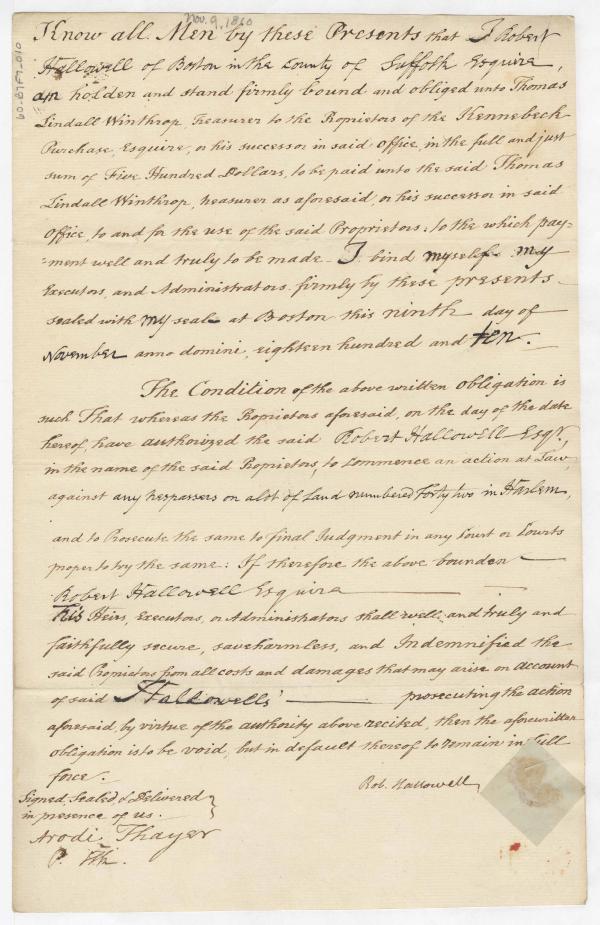 Nov. 9, 1810
60-B7F7-010
Know all Men by these Presents that I Robert
Hallowell of Boston in the County of Suffolk Esquire,
am holden and stand firmly bound and obliged unto Thomas
Lindall Winthrop, Treasurer to the Proprietors of the Kennebeck
Purchase, Esquire, or his successor in said Office, in the full and just
sum of Five Hundred Dollars, to be paid unto the said Thomas
Lindall Winthrop, treasurer as aforesaid, or his successor in said
Office, to and for the use of the said Proprietors: to the which pay=
=ment well and truly to be made - I bind myself my
Executors, and Administrators firmly by these presents -
sealed with my seal at Boston this ninth day of
November anno domini, eighteen hundred and ten.
The Condition of the above written obligation is
such That whereas the Proprietors aforesaid, on the day of the date
hereof, have authorized the said Robert Hallowell Esqr.,
in the name of the said Proprietors, to commence an action at Law,
against any trespassers on a lot of Land numbered Forty two in Harlem,
and to Prosecute the same to final Judgment in any Court or Courts
proper to try the same: If therefore the above bounden
Robert Hallowell Esquire
His Heirs, Executors, or Administrators shall well, and truly and
faithfully secure, save harmless, and Indemnified the
said Proprietors from all costs and damages that may arise on account
of said Hallowells' prosecuting the action
aforesaid, by virtue of the authority above recited, then the aforewritten
obligation is to be void, but in default thereof to remain in full
force.
Rob. Hallowell
Signed, Sealed & Delivered
in presence of us.
Arodi Thayer
P.